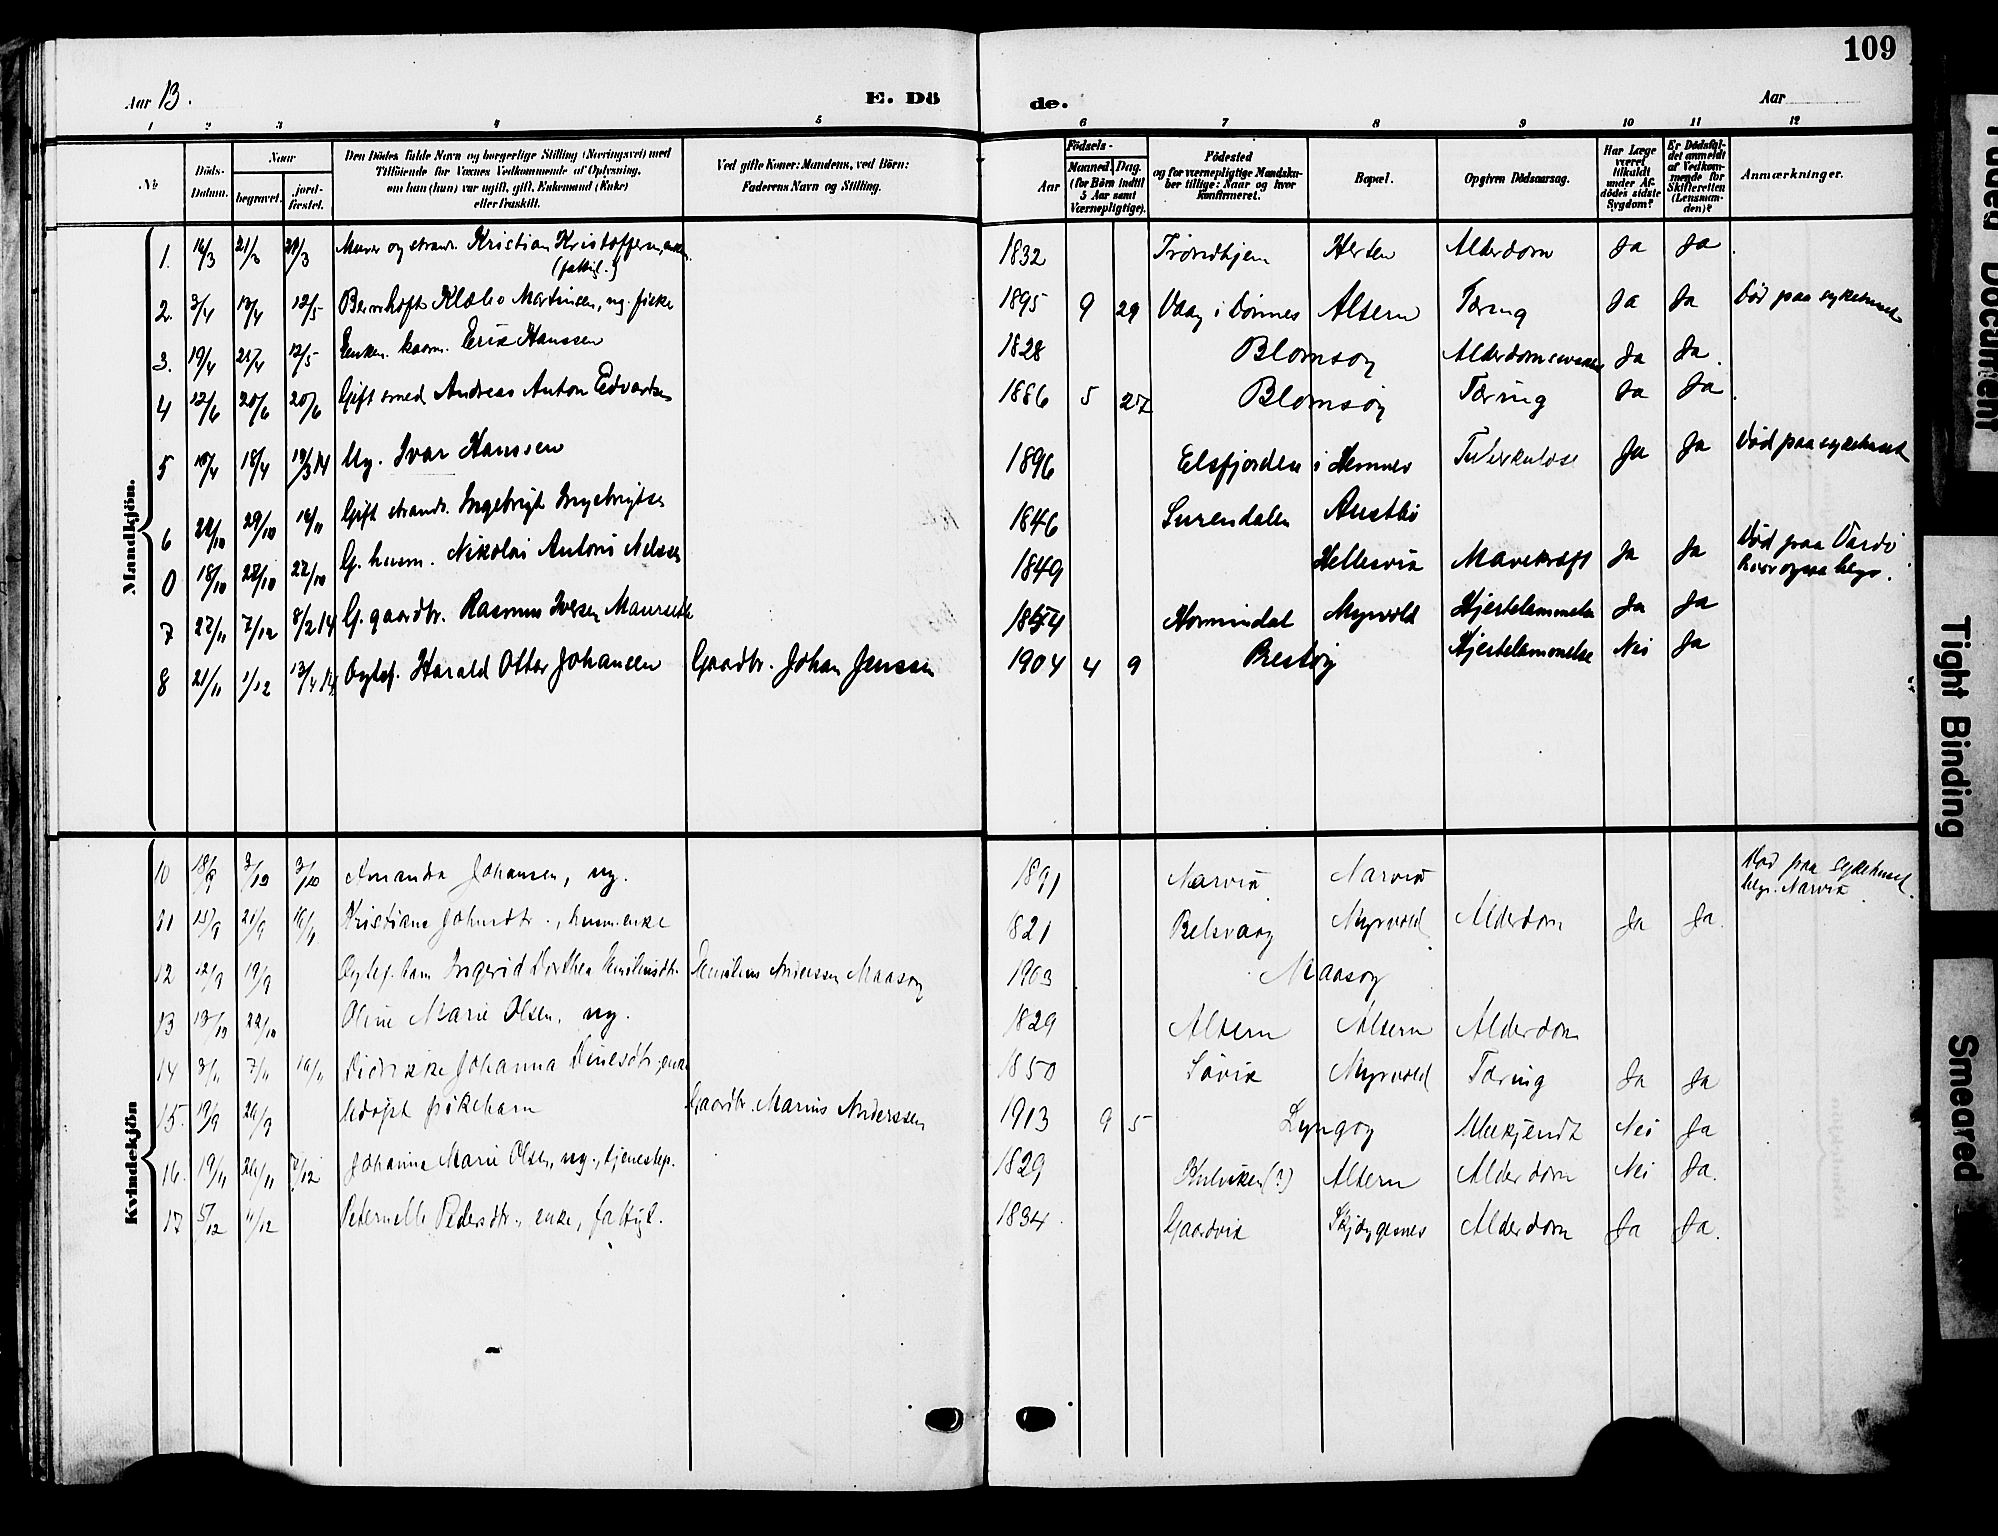 109
Aar 13.
E. Döde.
Aar
1 2 3 4 5 6 7 8 9 10 11 12
No.
Döds-Datum.
Naar
begravet.
jord-fæstet.
Den Dödes fulde Navn og borgerlige Stilling (Næringsvei) med
Tilföiende for Voxnes Vedkommende af Oplysning,
om han (hun) var ugift, gift, Enkemand (Enke)
eller fraskilt.
Ved gifte Koner: Mandens, ved Börn:
Faderens Navn og Stilling.
Födsels-
Aar
Maaned. Dag.
(for Börn indtil
5 Aar samt
Værnepligtige).
Födested
og for værnepligtige Mandska-
ber tillige: Naar og hvor
konfirmeret.
Bopæl.
Opgiven Dödsaarsag.
Har Læge
været
tilkaldt
under Af-
dödes sidste
Sygdom?
Er Dödsfal-
det anmeldt
af Vedkom-
mende for
Skifteretten
(Lensman-
den)?
Anmærkninger.
Mandkjön.
1. 14/3 21/3 21/3 Murer og strands. Kristian Kristoffersen, (fattigl.) 1832 Trondhjem Herten Alderdom Ja Ja
2. 3/4 13/4 12/5 Bernhoft Klæbo Martinsen, ug. fisker 1895 9 29 Vaag i Dönnes Alsten Tæring Ja Ja Död paa sykehuset
3. 19/4 25/4 12/5 Enkem. kaarm. Erik Hanssen 1828 Blomsöy Alderdomssvakhet Ja Ja
4 12/6 20/6 20/6 Gift smed Andreas Anton Edvardsen 1886 5 27 Blomsöy Tæring Ja Ja
5 10/4 18/4 19/3 14 Ug. Ivar Hanssen 1896 Elsfjorden i Hemnes Tuberkulose Ja Ja Död paa sykehuset
6 22/10 29/10 16/11 Gift strands. Ingebrigt Ingebrigtsen 1846 Surendalen Austbö
0 18/10 28/10 22/10 G. husm. Nikolai Antoni Nilsen 1849 Hellesvik Mavekræft Ja Ja Död paa Vardö hvor ogsaa begr.
7 27/11 7/12 8/2 14 G. gaardbr. Rasmus Iversen Maurseth 1854 Hornindal Myrvold Hjertelammelse Ja Ja
8 21/11 1/12 13/4 14 Ægtef. Harald Ottar Johansen Gaardbr. Johan Jenssen 1904 4 9 Prestöy Hjertelammelse Nei Ja
Kvindekjön
10 18/9 3/10 3/10 Amanda Johansen, ug. 1891 Narvik Narvik Död paa sykehuset begr. Narvik
11 15/9 21/9 16/11 Kristiane Johnsdtr., husm.enke 1821 Belsvaag Myrvold Alderdom Ja Ja.
12 12/9 19/9 Ægtef. barn Ingerid Dorthea Emiliusdtr. Emilius Anderssen Maasöy 1903 Maasöy
13 13/10 22/10 Oline Marie Olsen, ug. 1829 Alstern Alstern Alderdom
14 3/11 7/11 16/11 Didrikke Johanna Dinesdtr. enke 1850 Sövik Myrvold Tæring Ja Ja
15. 19/9 26/9 Udöpt pikebarn Gaardbr. Marius Anderssen 1913 9 5 Lyngöy Ubekjendt Nei Ja
16. 19/11 26/11 5/12 Johanna Marie Olsen, ug., tjenestep. 1829 (?) Alstern Alderdom Nei Ja.
17 5/12 11/12 Peternelle Pedersdtr., enke, fattigl. 1834 Gaardvik Skjeggesnes Alderdom Ja Ja.
Faded Document
Tight Binding
Smeared